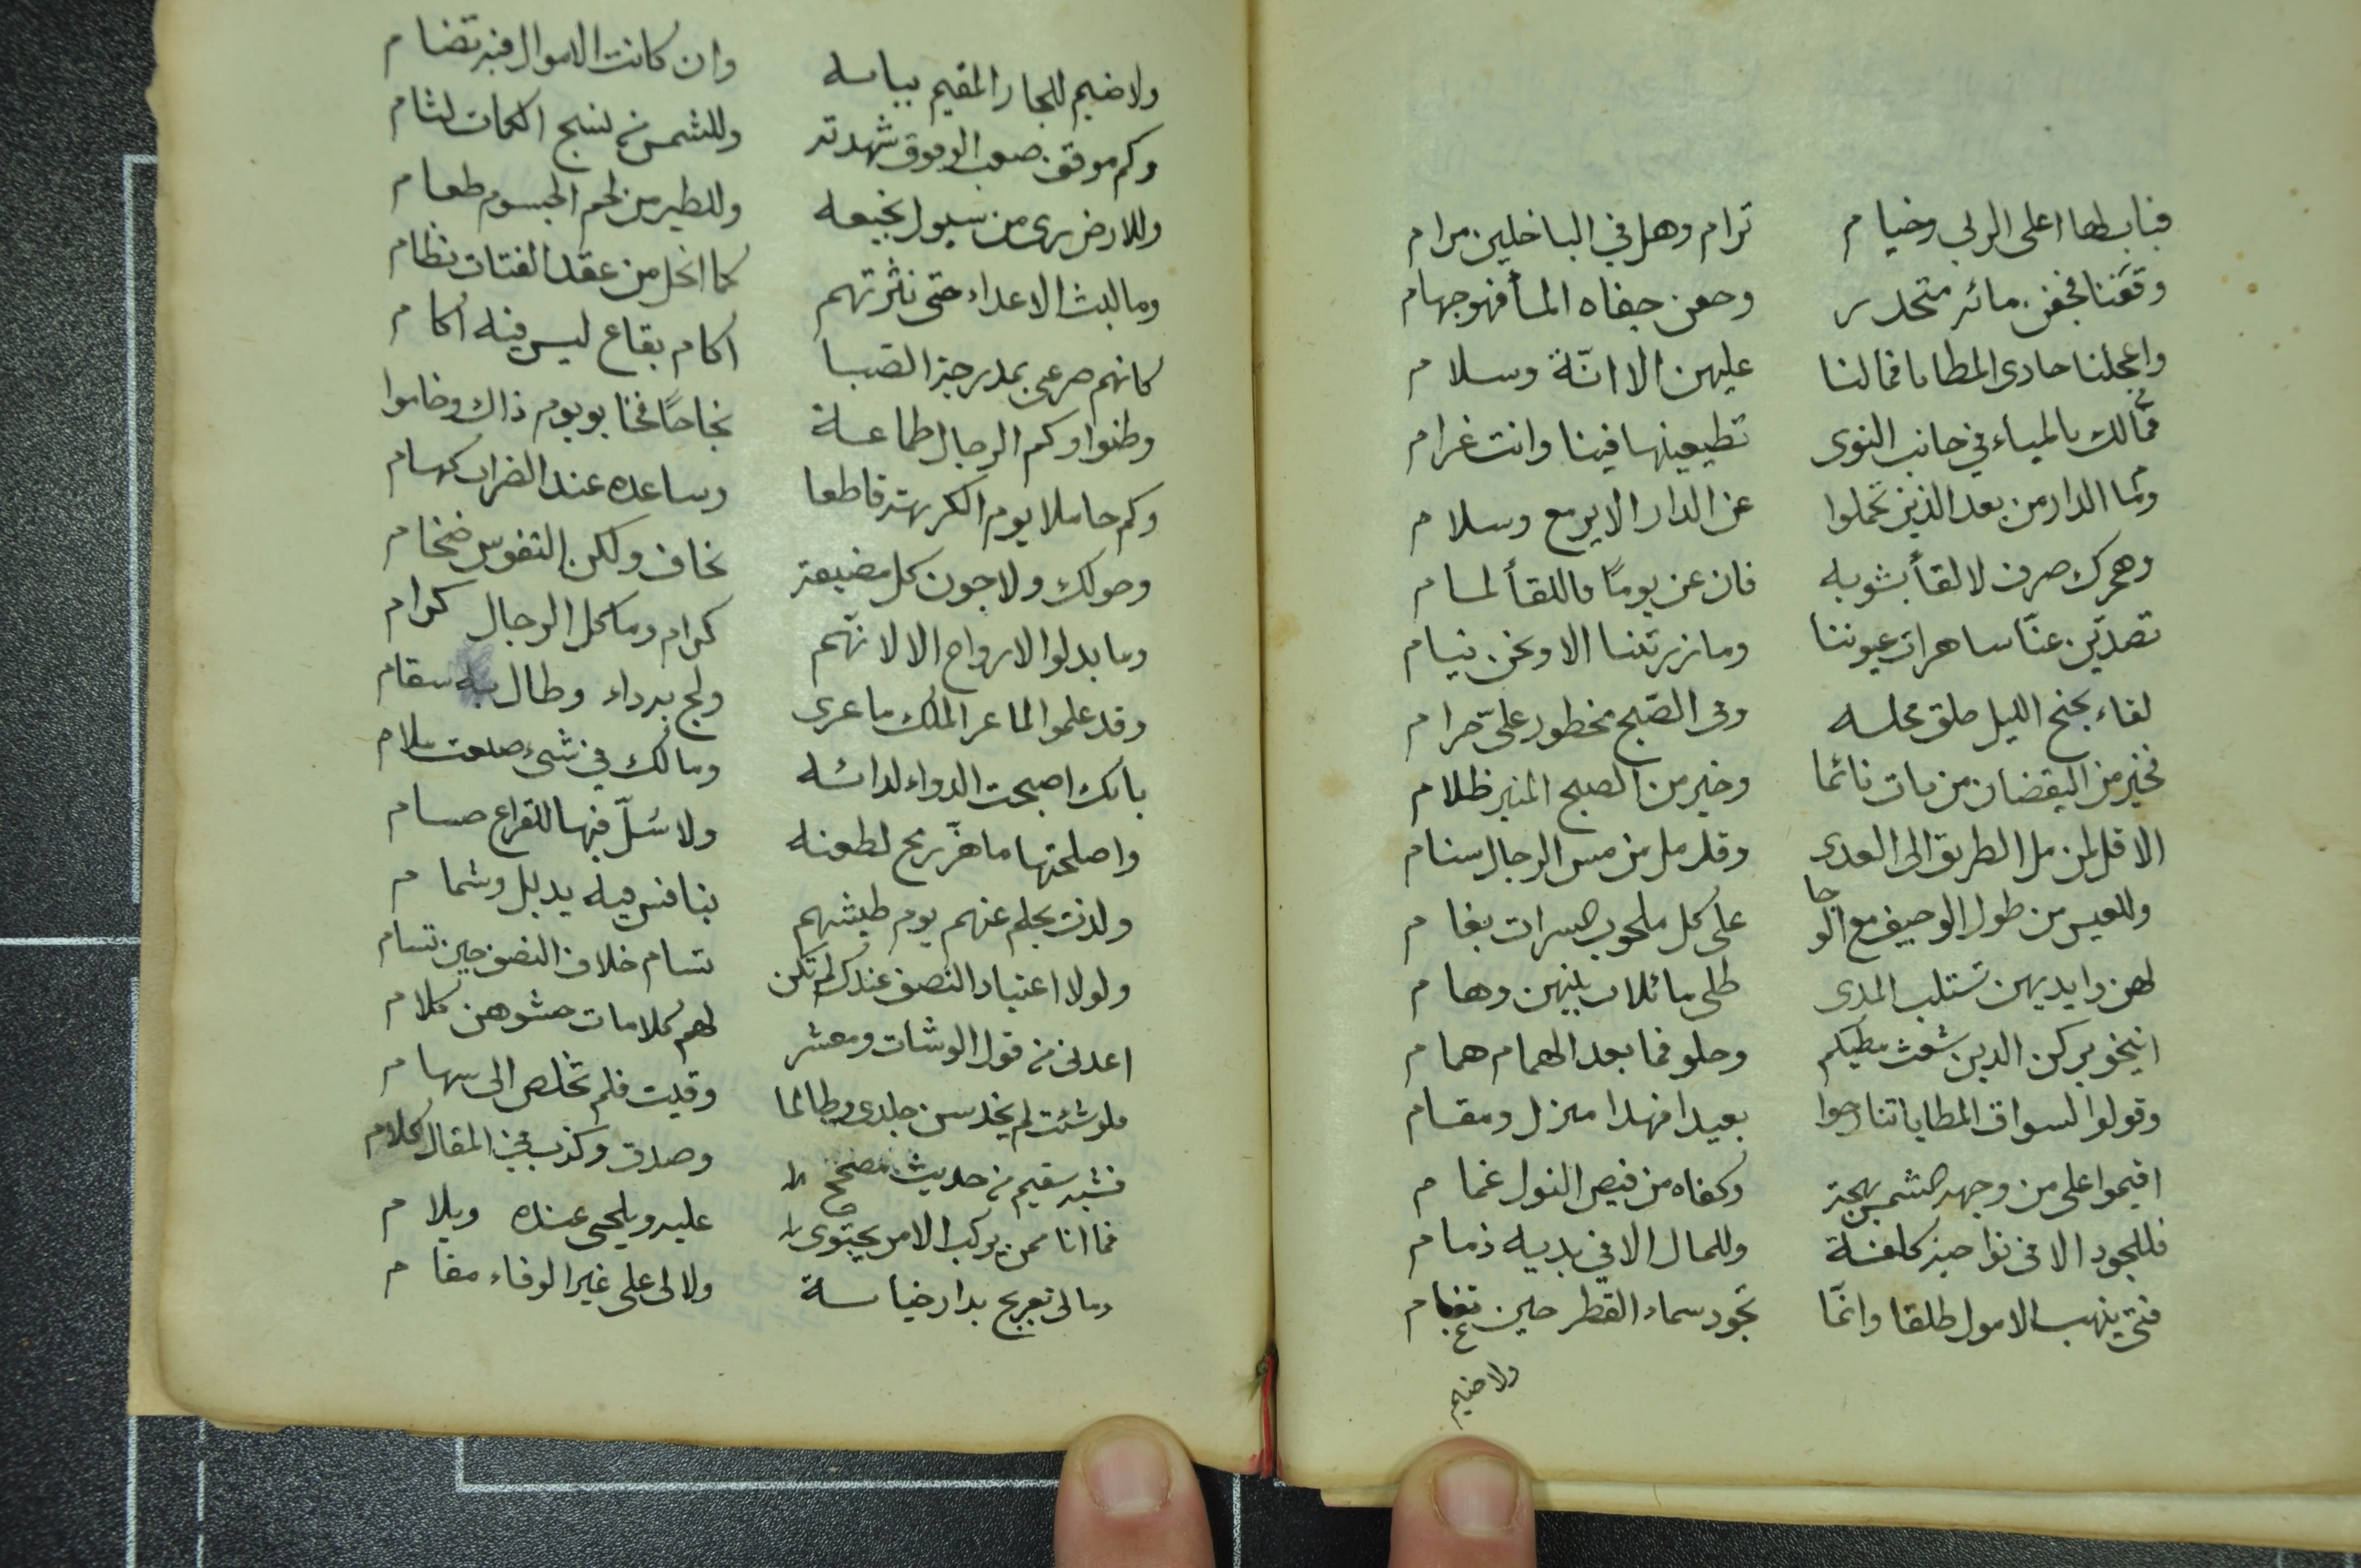 قبابطها اعلى الربى وخيام ترام وهل في الباخلين مرام
وقفنا فجفن مائر متحدر وجفن جفاه المأ فهو جهام
واعجلنا حادى المطايا فمالنا عليهن الا انّة وسلام
فمالك يالمياء في جانب النوى تطيعينها فينا وانت غرام
وما الدار من بعد الذين تحملوا عن الدار الا يرمع وسلام
وهجرك صرف لا لقأ يشوبه فان عن يومًا فاللقأ لمام
تصدّين عنّا ساهرات عيوننا وما زرتنا الا ونحن نيام
لقاء بجنح الليل طلق محلله وفى الصّبح محظور علىّ حرام
فخير من اليقضان من بات نائما وخير من الصبح المنير ظلام
الا قل لمن مل الطريق الى العدى وقد مل من مس الرحال سنام
وللعيس من طول الوجيف مع الوجا على كل ملحوب السرات بغام
لهن وايديهن تستلب المدى طلى مائلات بينهن وهام
انيخو بركن الدين شعث مطيكم وحلو فما بعد الهمام همام
وقولوا لسواق المطايا تنازحوا بعيدا فهذا منزل ومقام
اقيموا على من وجهه الشمس بهجة وكفاه من فيض النول غمام
فللجود الا فى نواحيه كلفة وللمال الا في يديه ذمام
فتى ينهب الامول طلقا وانمّا تجود سماء القطر حين تغام
ولا ضيم
ولا ضيم للجار المقيم ببابه وان كانت الاموال فيه تضام
وكم موقف صعب الوقوف شهدته وللشمس من نسج الكمات لثام
وللارض رى من سيول نجيعه وللطير من لحم الجسوم طعام
وما لبث الاعداء حتى نثرتهم كما انحل من عقد الفتات نظام
كانهم صرعى بمدرجة الصبا اكام بقاع ليس فيه اكام
وظنوا وكم الرجال طماعة نجاحًا فخابو يوم ذاك وخاموا
وكم حاملا يوم الكريهة قاطعا وساعده عند الضراب كهام
وحولك ولاجون كل مضيقة نحاف ولكن النفوس ضخام
وما بدلوا الارواح الا لانّهم كرام وما كل الرجال كرام
وقد علموا لما عر الملك ما عرى ولج به داء وطال به سقام
بانك اصبحت الدواء لدائه ومالك في شىء صنعت ملام
واصلحتها ما هزّ رمح لطعنه ولا سُلّ فيها للقراع حسام
ولذت بحلم عنهم يوم طيشهم ينافس فيه يذبل وشمام
ولولا اعتياد النصف عندك لم تكن تسام خلاف النصف حين تسام
اعدنى من قول الوشات ومعشر لهم كلامات حشوهن كلام
فلو شئت لم يخدسن جلدى وطالما وقيت فلم تخلص الى سهام
فثبه سقيم من حديث مصحح وصدق وكذب في المقال كلام
فما انا ممن يركب الامر يجتوى عليه ويلحى عنده ويلام
وما لى تعريج بدار خيانة ولا لى على غير الوفاء مقام